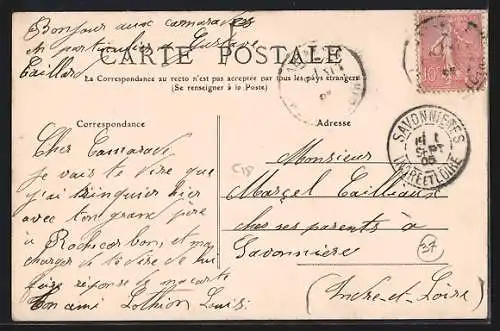 Bonjour aux camarades
en particulier Gustave
Taillard
CARTE POSTALE
La Correspondance au recto n'est pas acceptée par tous les pays étrangers
(Se renseigner à la Poste)
Correspondance
Adresse
Cher Camarade
je vais te dire que
j'ai trinquier hier
avec ton grand père
à Rochecorbon et m'a
charger de te dire de lui
faire réponse de ma carte
Ton ami Lothion Louis
Monsieur
Marcel Tailleaux
chez ses parents à
Savonnière
(Indre-et-Loire)
C18
37
10
SAVONNIÈRES
1
SEPT
05
INDRE ET LOIRE